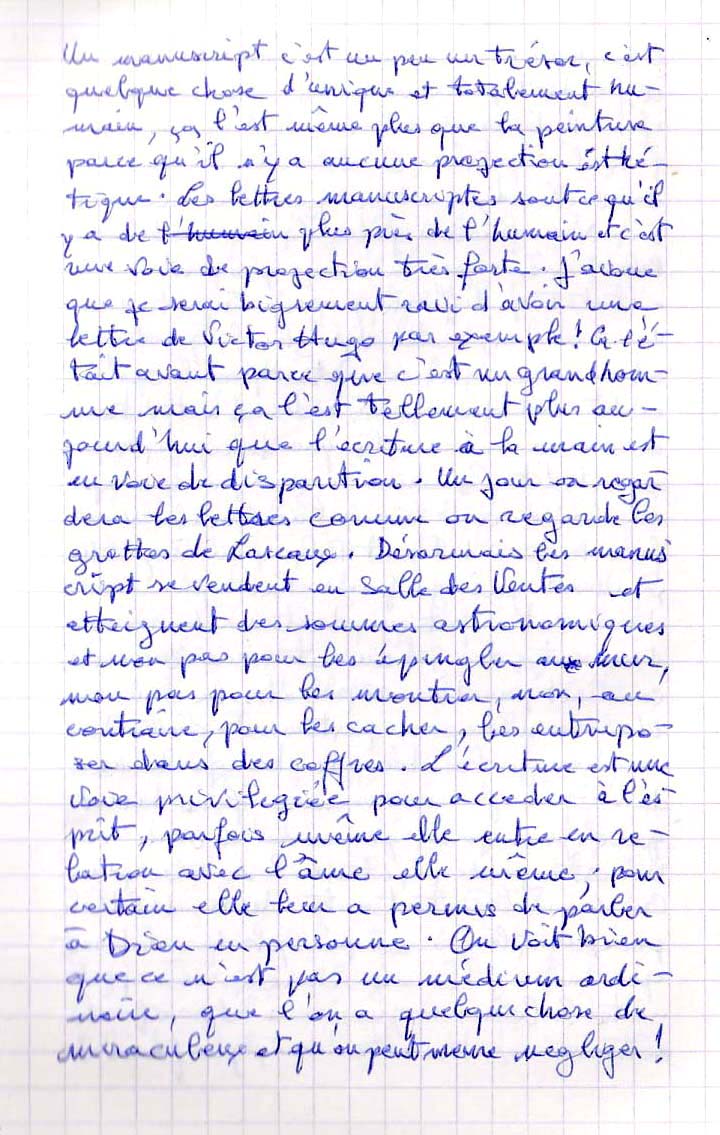 Un manuscript c'est un peu un trésor, c'est
quelque chose d'unique et totalement hu-
main, ça l'est même plus que la peinture
parce qu'il n'y a aucune projection ésthé-
tique. Les lettres manuscriptes sont ce qu'il
y a de l'humain plus près de l'humain et c'est
une voie de projection très forte. J'avoue
que je serai bigrement ravi d'avoir une
lettre de Victor Hugo par exemple! Ça l'é-
tait avant parce que c'est un grand hom-
me mais ça l'est tellement plus au-
jourd'hui que l'écriture à la main est
en voie de disparition. Un jour on regar
dera les lettres comme on regarde les
grottes de Lascaux. Désormais les manus
cript se vendent en Salle des Ventes et
atteignent des sommes astronomiques
et non pas pour les épingler au mur,
non pas pour les montrer, non, au
contraire, pour les cacher, les entrepo-
ser dans des coffres. L'écriture est une
voie privilegiée pour acceder à l'es
prit, parfois même elle entre en re-
lation avec l'âme elle même, pour
certain elle leur a permis de parler
à Dieu en personne. On voit bien
que ce n'est pas un médium ordi-
naire, que l'on a quelque chose de
miraculeux et qu'on peut meme negliger!